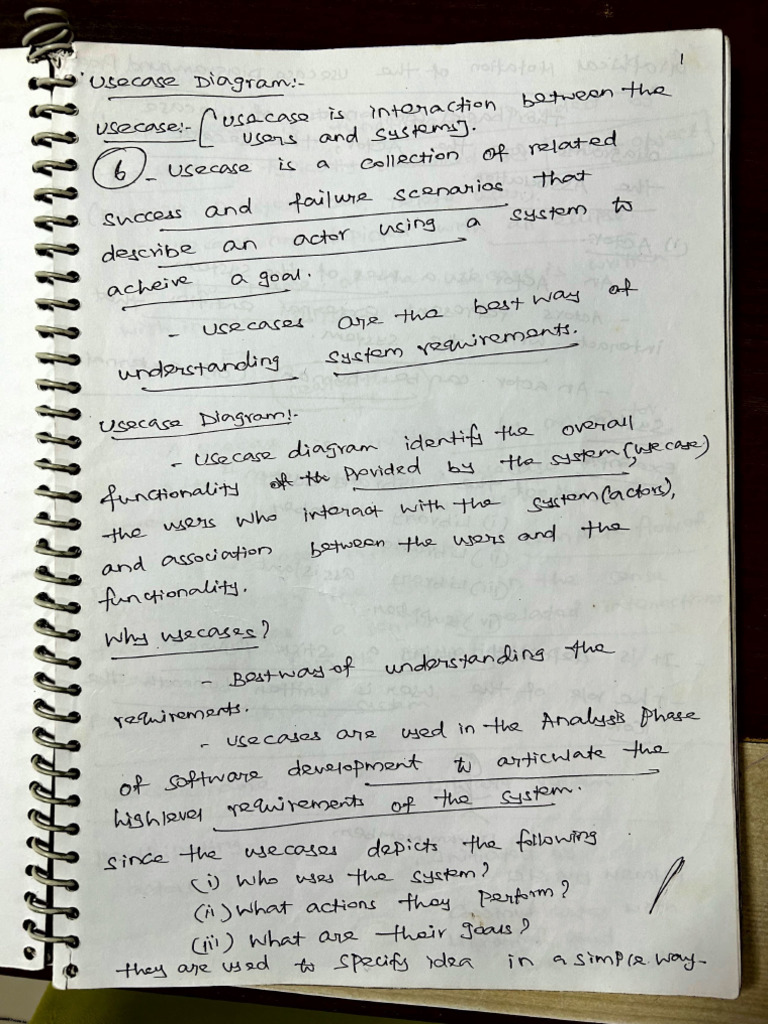 1
Usecase Diagram:-
Usecase:- [Usecase is interaction between the
users and systems].
6 - Usecase is a collection of related
success and failure scenarios that
describe an actor using a system to
acheive a goal.
- Usecases are the best way of
understanding system requirements.
Usecase Diagram:-
- Usecase diagram identify the overall
functionality of the provided by the system(usecase)
the users who interact with the system(actors),
and association between the users and the
functionality.
Why usecases?
- Best way of understanding the
requirements.
- Usecases are used in the Analysis phase
of software development to articulate the
highlevel requirements of the system.
since the usecases depicts the following
(i) Who uses the system?
(ii) What actions they perform?
(iii) What are their goals?
they are used to specify idea in a simple way.